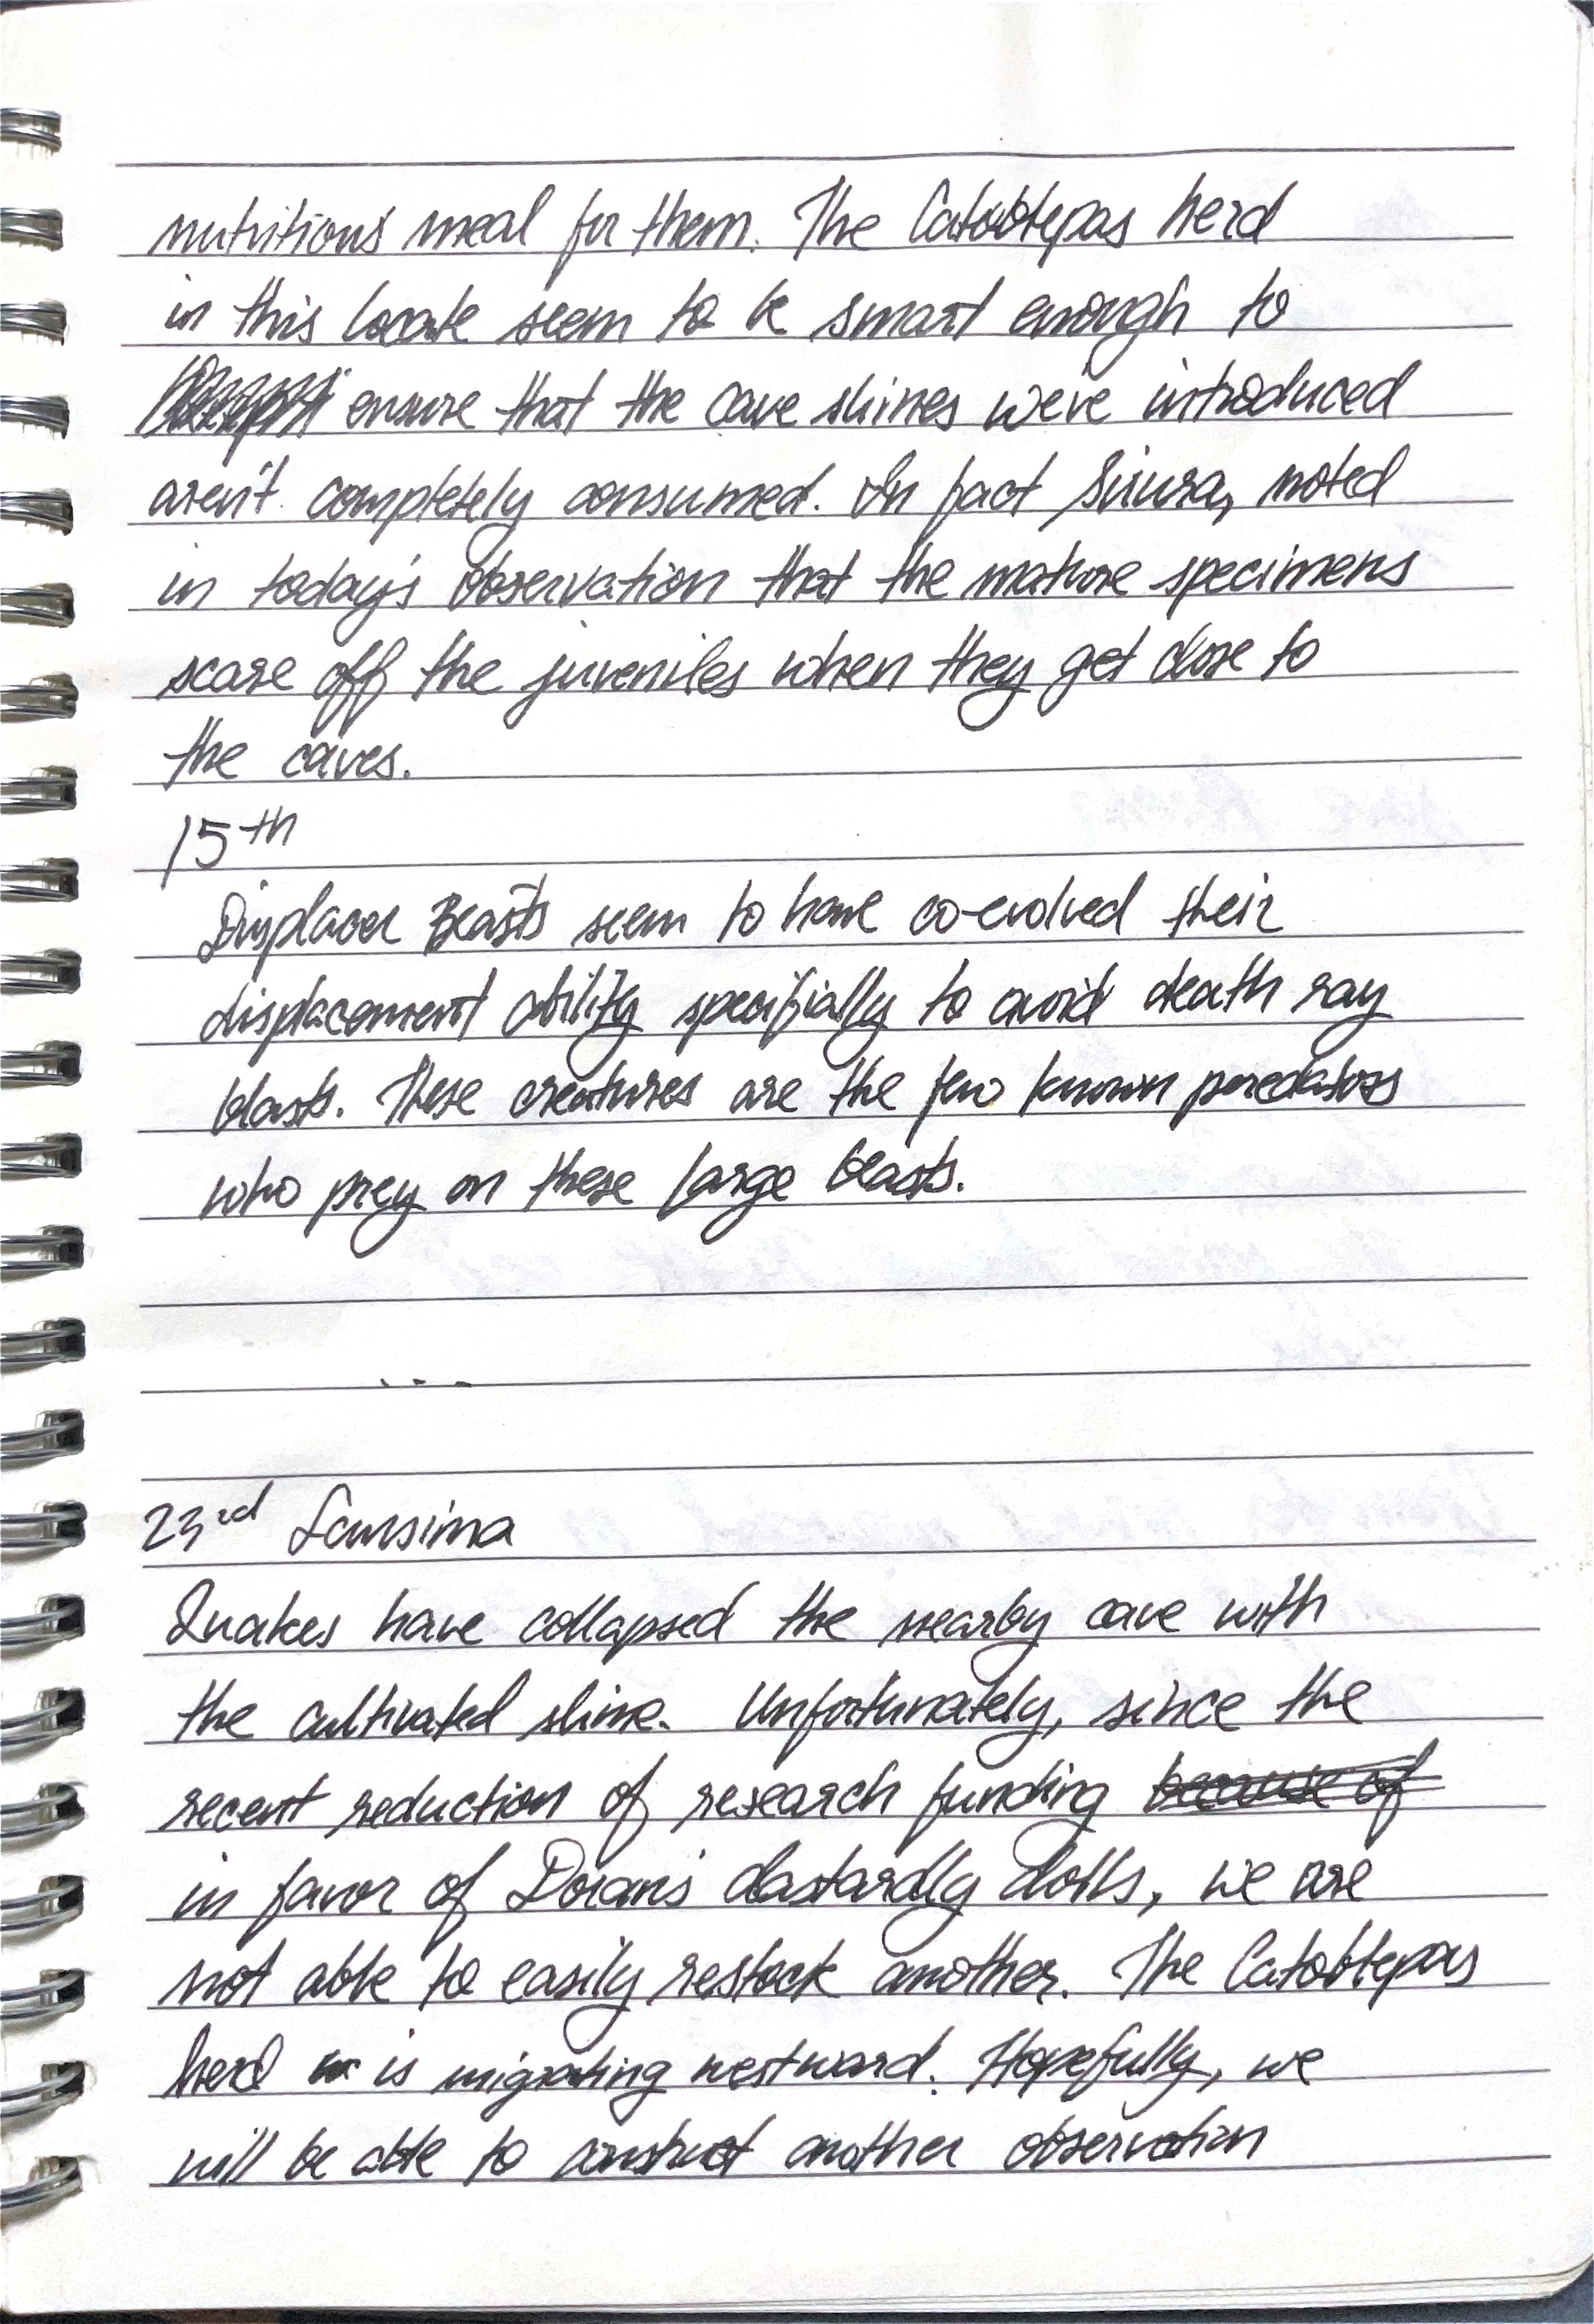 nutritious meal for them. The Catoblepas herd
in this locale seem to be smart enough to
ensure that the cave slimes we've introduced
aren't completely consumed. In fact, noted
in today's observation that the mature specimens
scare off the juveniles when they get close to
the caves.
15th
Displacer Beasts seem to have co-evolved their
displacement ability specifially to avoid death ray
blasts. These creatures are the few known predators
who prey on these large beasts.
...
23rd
Quakes have collapsed the nearby cave with
the cultivated slime. Unfortunately, since the
recent reduction of research funding because of
in favor of Doran's dastardly dolls, we are
not able to easily restock another. The Catoblepas
herd is migrating westward. Hopefully, we
will be able to construct another observation